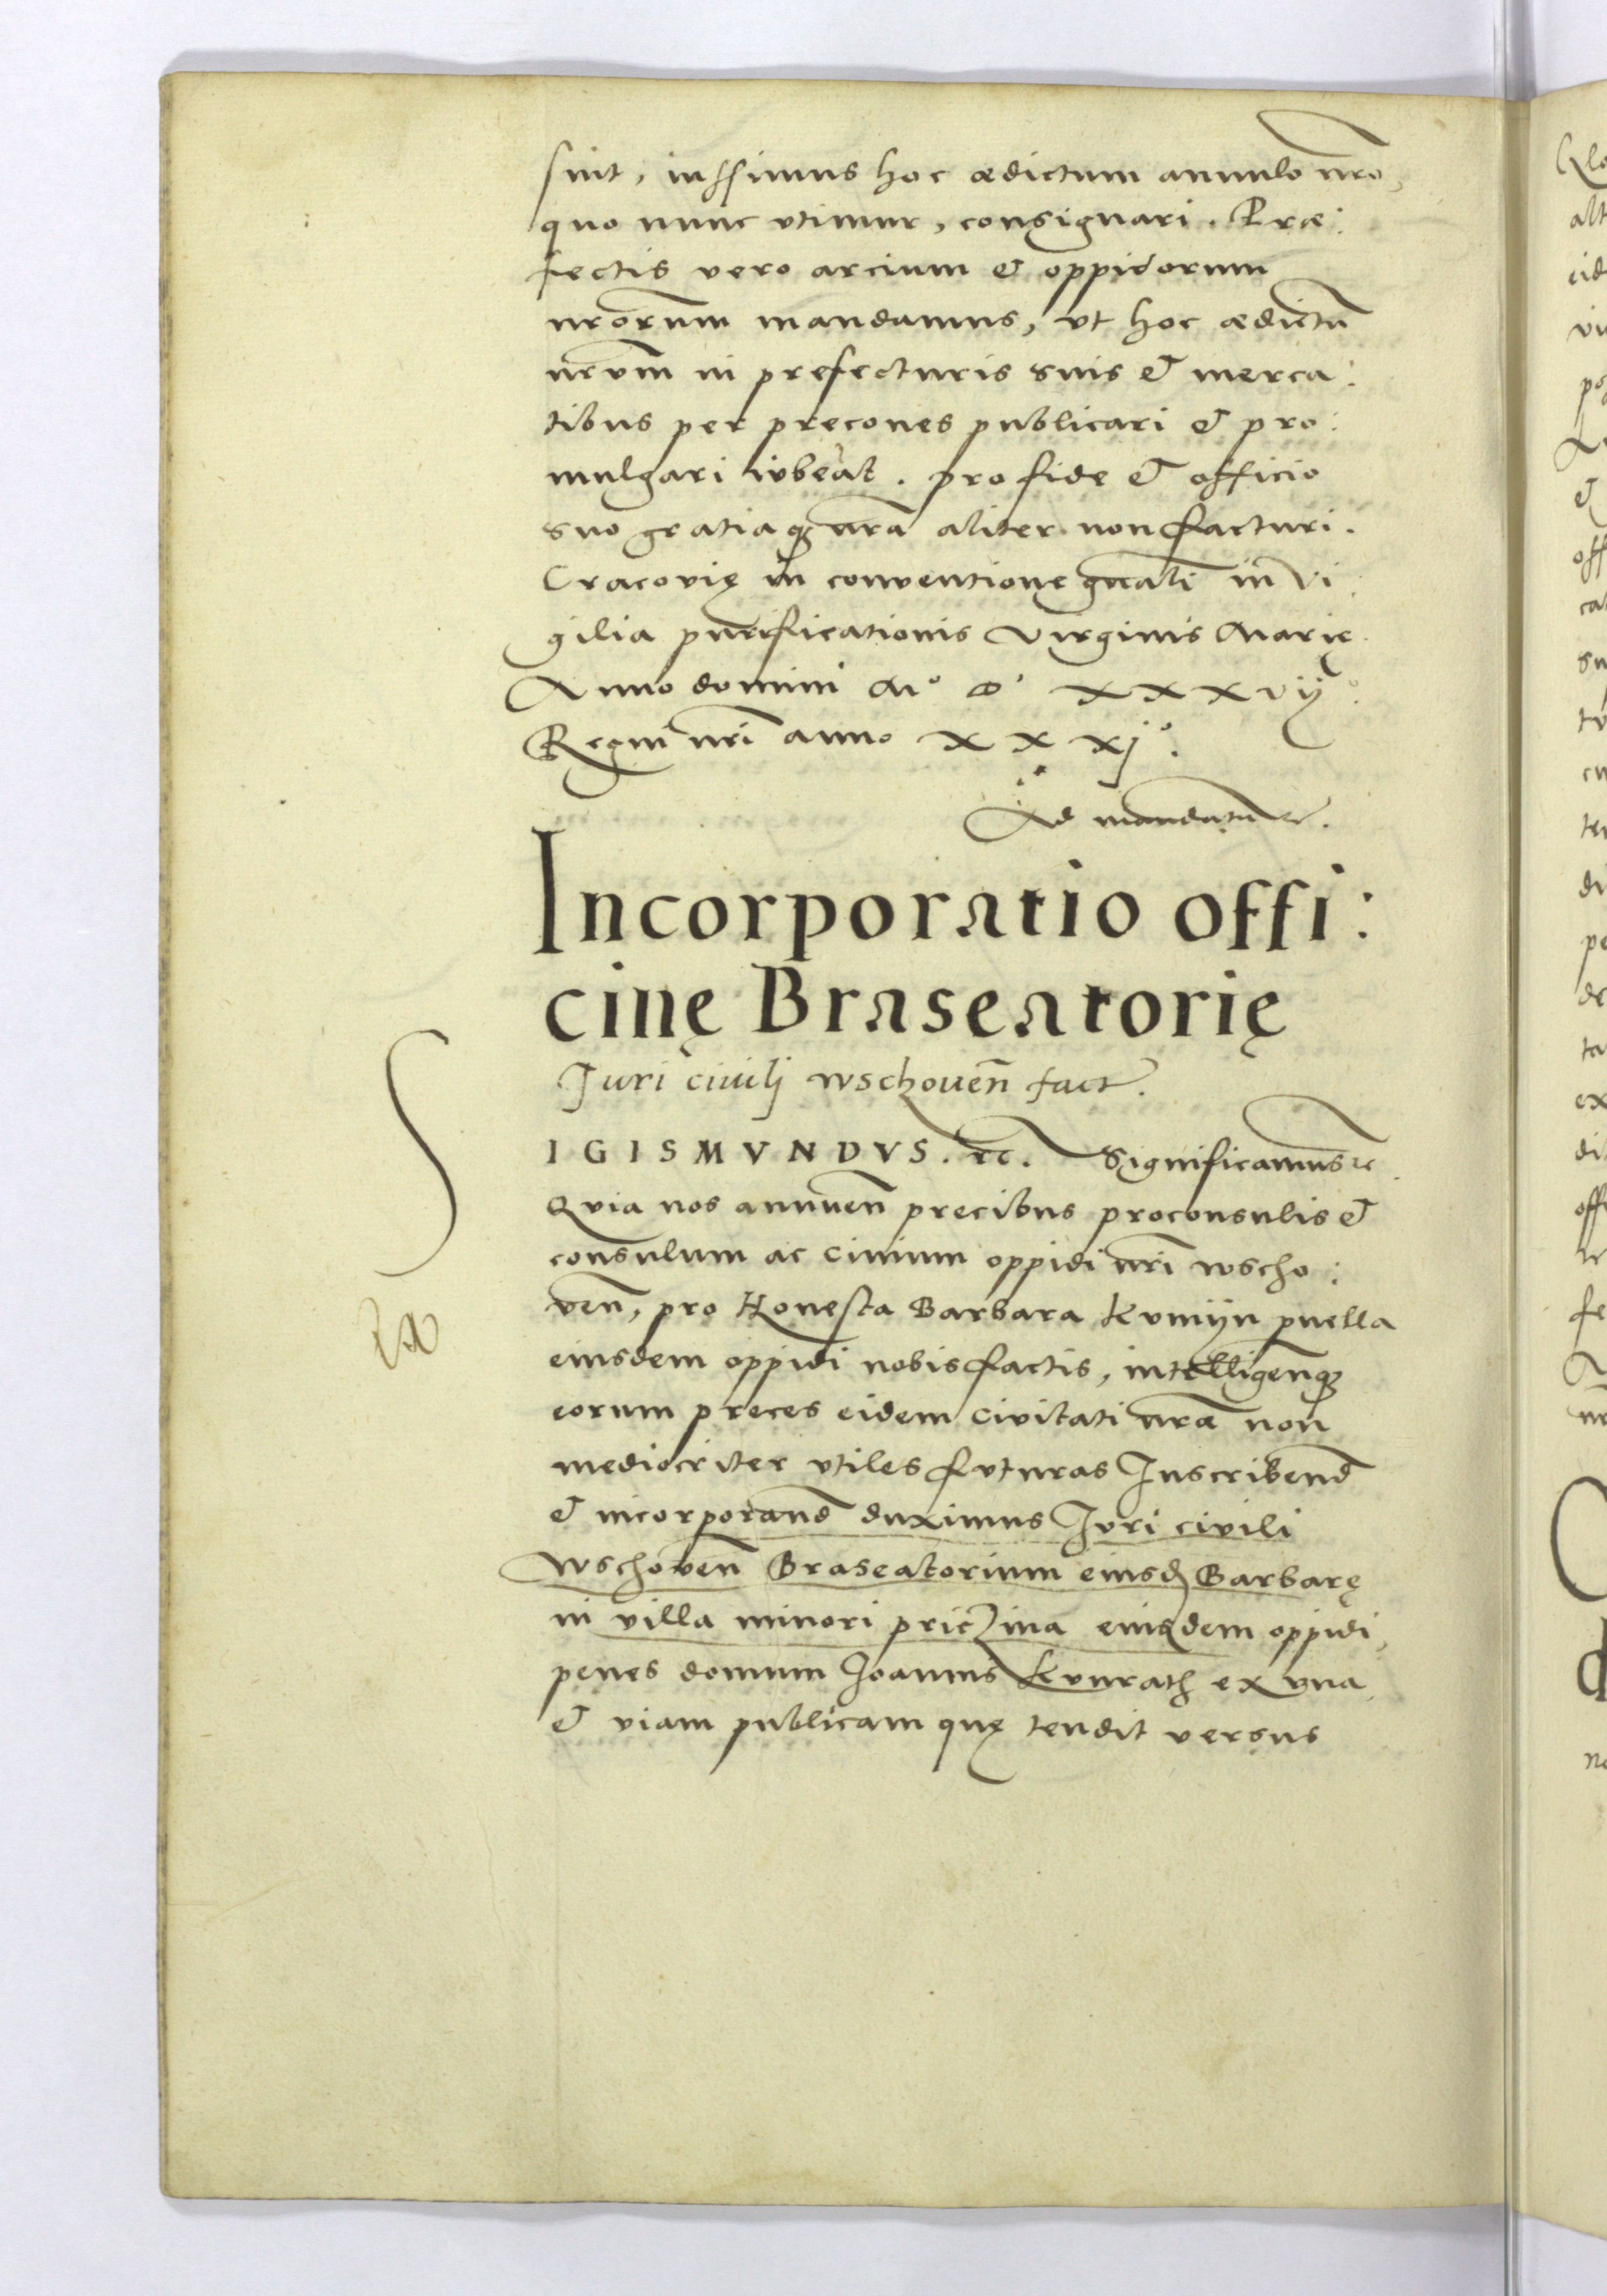 sint, iussimus hoc ædictum annulo nr̃o,
quo nunc vtimur, consignari. Præ:
fectis vero arcium & oppidorum
nr̃orum mandamus, vt hoc ædictũ
nr̃vm in prefecturis suis & merca:
tibus per precones publicari & pro:
mulgari ivbeat. pro fide & officio
suo gratiaqꝫ nr̃a aliter non facturi.
Cracovię in conventione gñali in vi
gilia purificationis Virginis Marię.
Anno domini Mº Dº XXXvijº.
Regni nr̃i anno XXXjº.
Ad mandatũ &c.
Incorporatio offi:
cinę Braseatorię
Juri ciuilj wschoueñ fact.
S
IGISMVNDVS. &c. Significamus &c.
Qvia nos annueñ precibus proconsulis &
consulum ac ciuium oppidi nr̃i wscho:
veñ, pro Honesta Barbara Kvnijn puella
eiusdem oppidi nobis factis, intelligeñqꝫ
eorum preces eidem civitati nr̃æ non
mediocriter vtiles fvturas Inscribend̃
& incorporand̃ duximus Jvri civili
Wschoveñ Braseatorium eiusd Barbarę
in villa minori priczina eiusdem oppidi,
penes domum Joannis Kvnrath ex vna,
& viam publicam quę tendit versus